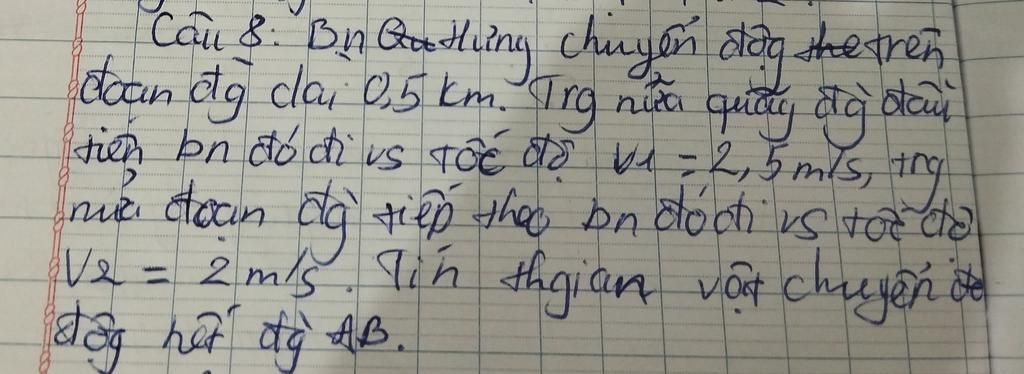 Câu 8: Bn Hưng chuyển độg trên
đoạn đg dài 0,5 km. Trg nữa quãg đg đầu
tiên bn đó đi vs tốc độ V1 = 2,5 m/s, trg
nửa đoạn đg tiếp theo bn đó đi vs tốc độ
V2 = 2 m/s. Tín thgian vật chuyển
độg hết đg AB.